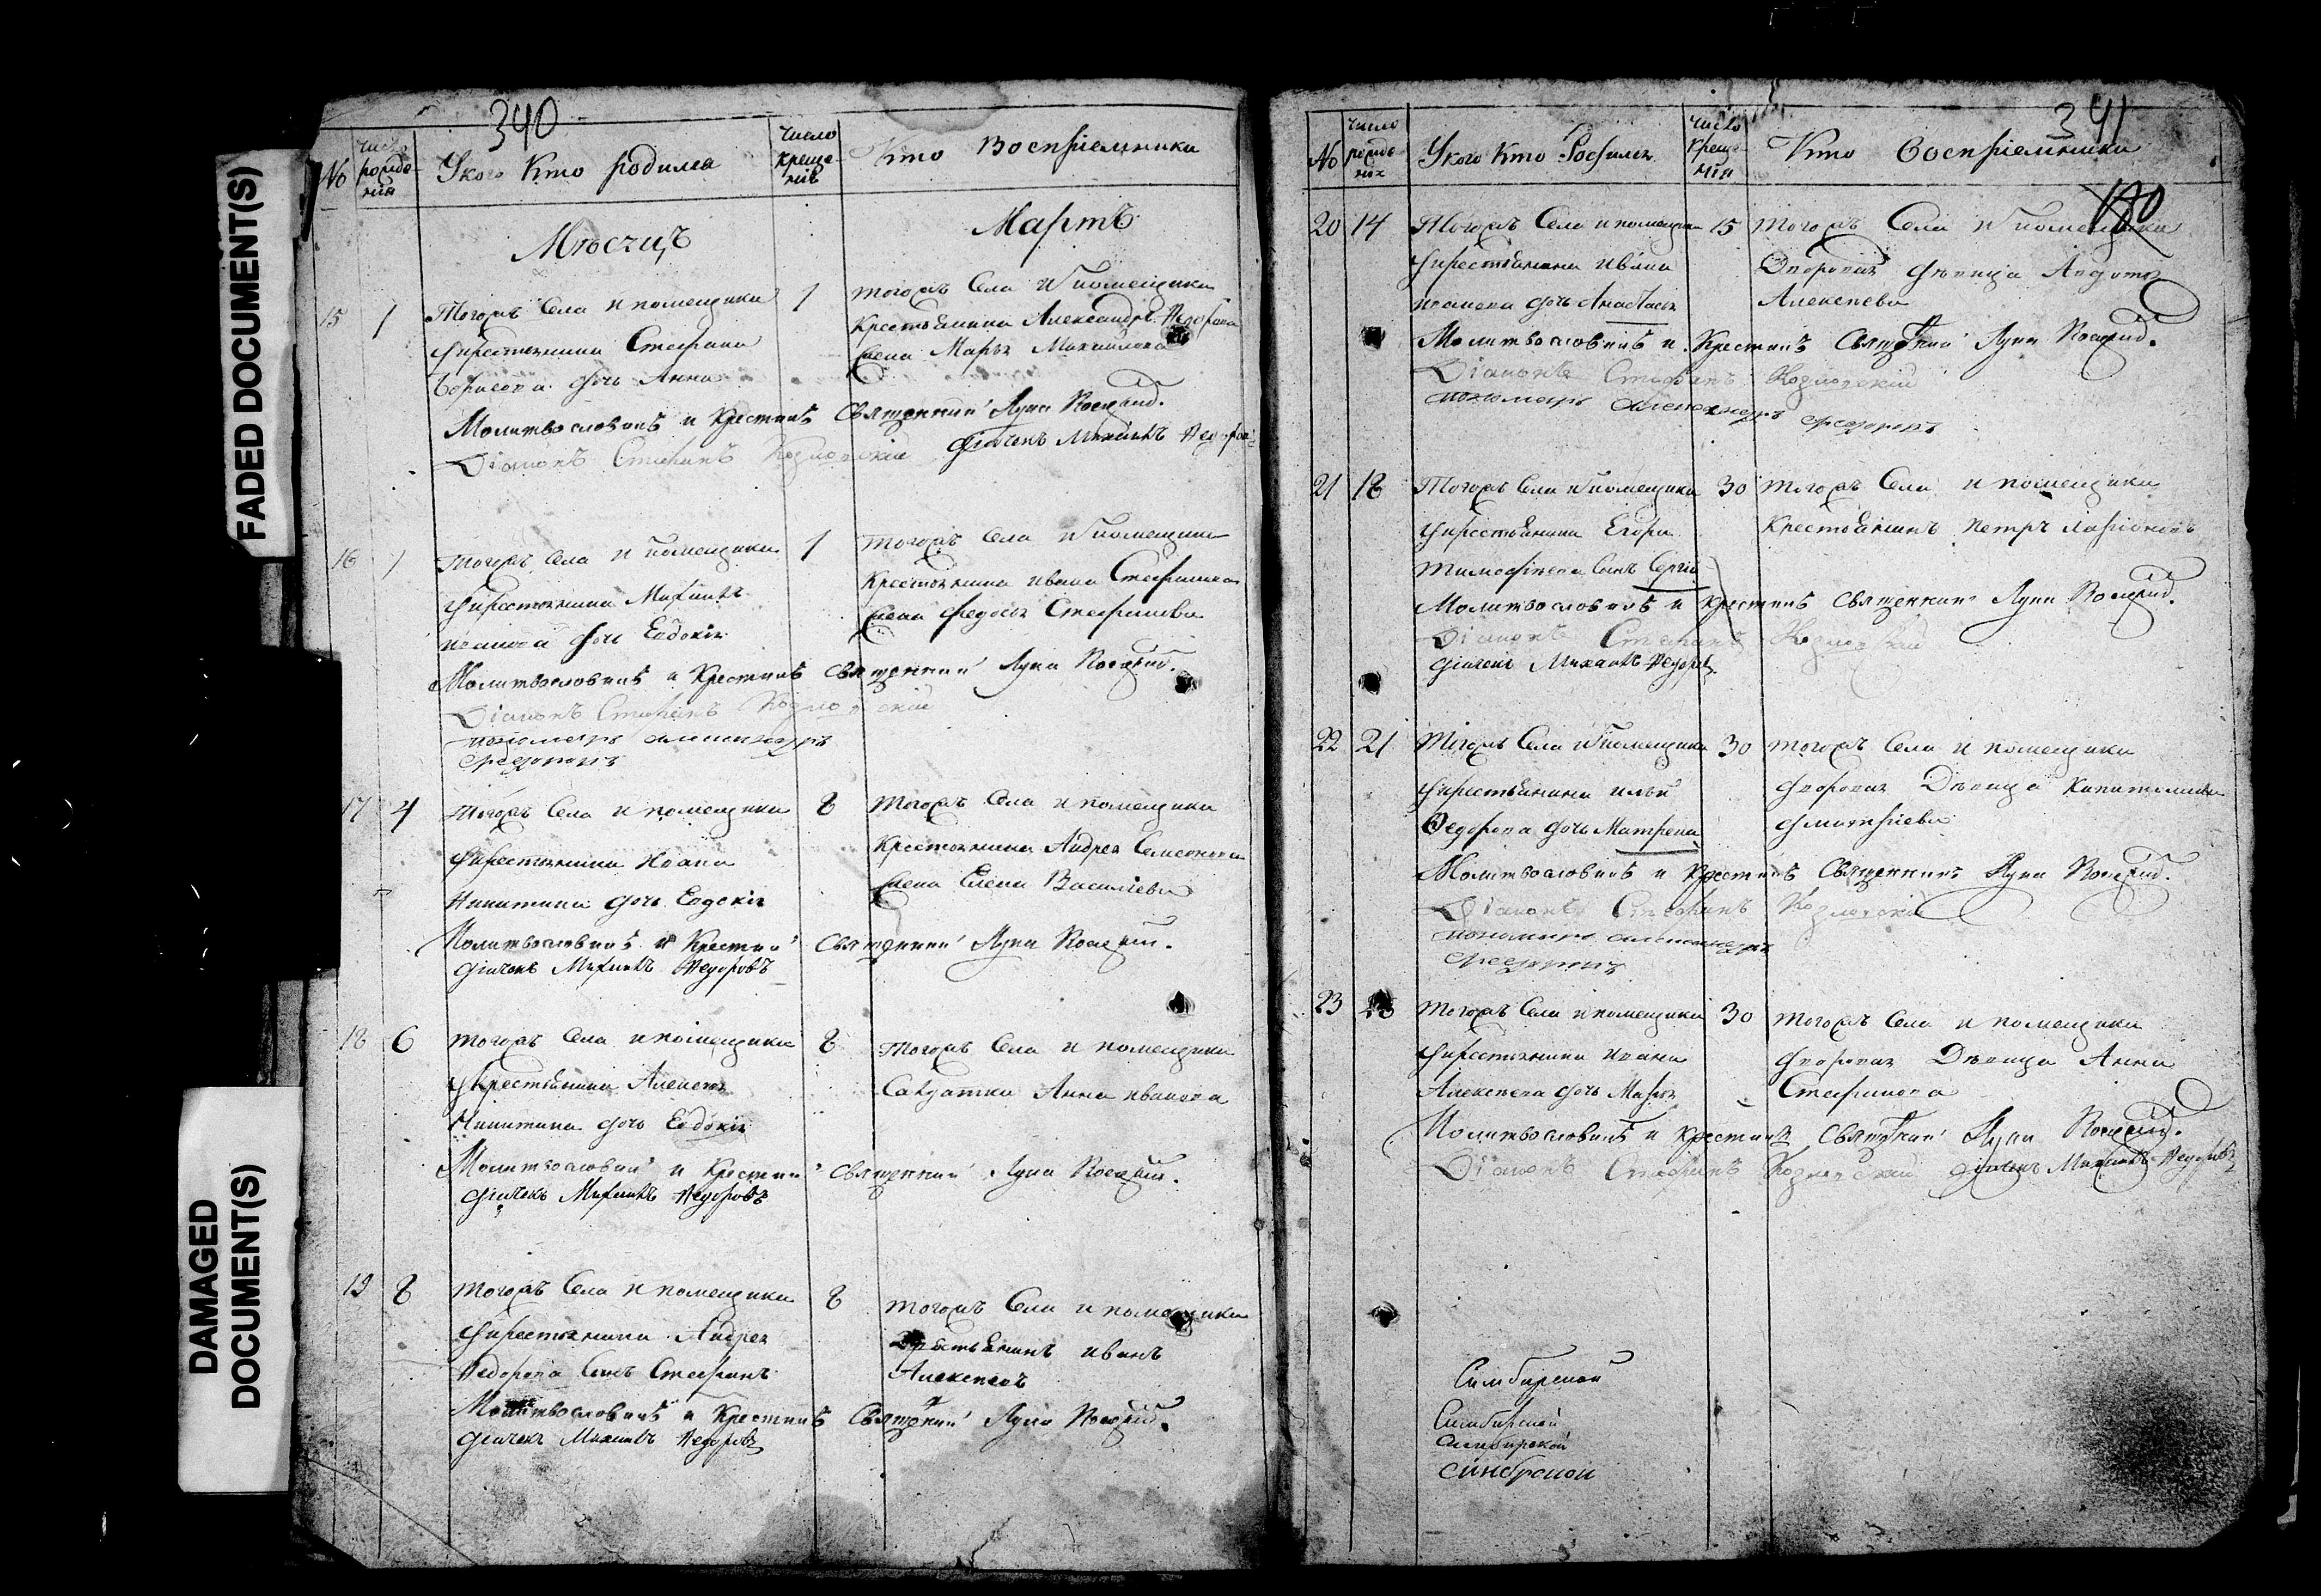 FADED DOCUMENT(S)
DAMAGED
DOCUMENT(S)
340
№
число рожде-ния
У кого кто родился
число креще-нiя
Кто восприемники
Мѣсецъ
Мартъ
15 1
Тогожъ Села и помещика
крестьянина Стефана
Борисова дочь Анна
1
тогожъ Села и помещика
крестьянина Александра Федорова
жена Марья Михайлова
Молитвословилъ и Крестилъ Священникъ Лука
Дiаконъ Стефанъ Козловскiй дiячекъ Михаилъ Федоровъ
16 1
Тогожъ Села и помещика
крестьянина Михаила
Иванова дочь Евдокiя
1
тогожъ Села и помещика
крестьянина Ивана Стефанова
жена Федосья Стефанова
Молитвословилъ и Крестилъ Священникъ Лука
Дiаконъ Стефанъ Козловскiй
пономарь Александръ
Федоровъ
17 4
тогожъ Села и помещика
крестьянина Ивана
Никитина дочь Евдокiя
8
тогожъ Села и помещика
крестьянина Андрея Семенова
жена Елена Васильева
Молитвословилъ и Крестилъ Священникъ Лука
дiячекъ Михаилъ Федоровъ
18 6
тогожъ Села и помещика
крестьянина Алексея
Никитина дочь Евдокiя
8
тогожъ Села и помещика
Салдатка Анна Иванова
Молитвословилъ и Крестилъ Священникъ Лука
дiячекъ Михаилъ Федоровъ
19 8
тогожъ Села и помещика
крестьянина Андрея
Федорова Сынъ Стефанъ
8
тогожъ Села и помещика
крестьянинъ Иванъ
Алексеевъ
Молитвословилъ и Крестилъ Священникъ Лука
дiячекъ Михаилъ Федоровъ
341
№
число рожде-нiя
У кого кто родился
число креще-нiя
Кто восприемники
20 14
Тогожъ Села и помещика
крестьянина Ивана
Иванова дочь Анастасья
15
тогожъ Села и помещика
Дворовая девица Авдотья
Алексеева
Молитвословилъ и Крестилъ Священникъ Лука
Дiаконъ Стефанъ Козловскiй
пономарь Александръ Федоровъ
21 18
Тогожъ Села и помещика
крестьянина Егора
Тимофеева Сынъ Сергiй
30
тогожъ Села и помещика
крестьянинъ Петръ Ларiоновъ
Молитвословилъ и Крестилъ Священникъ Лука
Дiаконъ Стефанъ Козловскiй
дiячекъ Михаилъ Федоровъ
22 21
Тогожъ Села и помещика
крестьянина Ильи
Федорова дочь Матрена
30
тогожъ Села и помещика
дворовая Девица Капитолина
Дмитрiева
Молитвословилъ и Крестилъ Священникъ Лука
Дiаконъ Стефанъ Козловскiй
пономарь Александръ
Федоровъ
23
тогожъ Села и помещика
крестьянина Ивана
Алексеева дочь Марья
30
тогожъ Села и помещика
дворовая Девица Анна
Стефанова
Молитвословилъ и Крестилъ Священникъ Лука
Дiаконъ Стефанъ Козловскiй дiячекъ Михаилъ Федоровъ
Симбирской
Симбирской
Симбирской
Синбрской